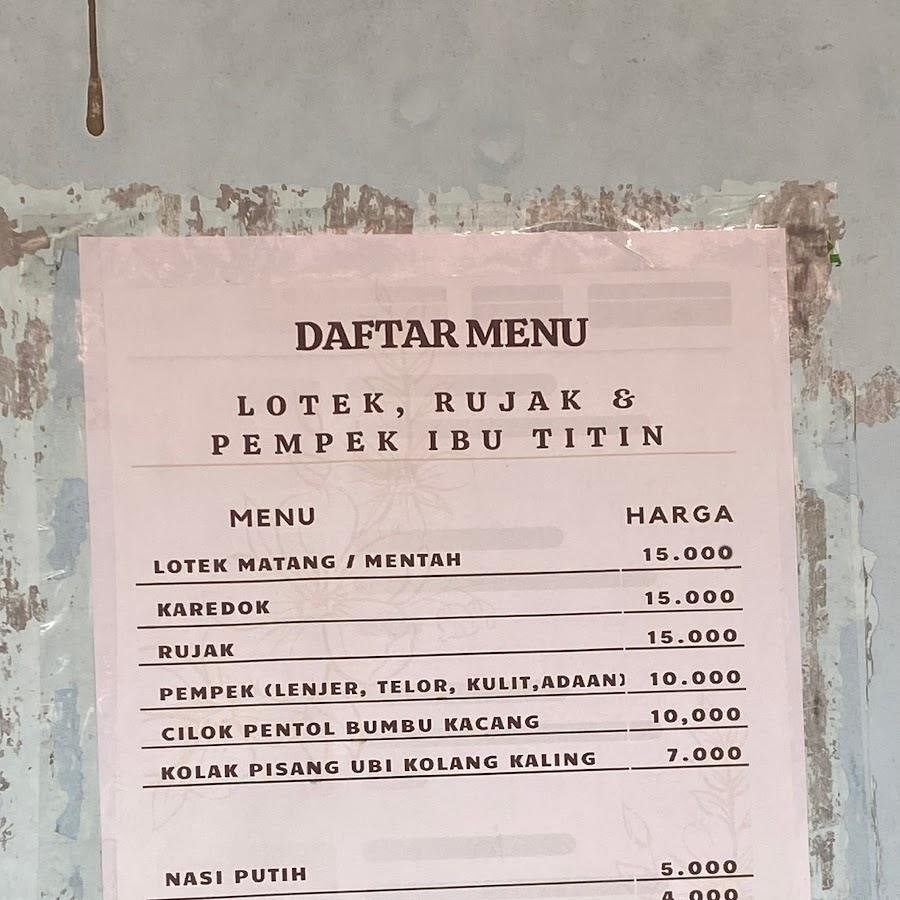 DAFTAR MENU
LOTEK, RUJAK &
PEMPEK IBU TITIN
MENU HARGA
LOTEK MATANG / MENTAH 15.000
KAREDOK 15.000
RUJAK 15.000
PEMPEK (LENJER, TELOR, KULIT,ADAAN) 10.000
CILOK PENTOL BUMBU KACANG 10,000
KOLAK PISANG UBI KOLANG KALING 7.000
NASI PUTIH 5.000
4.000